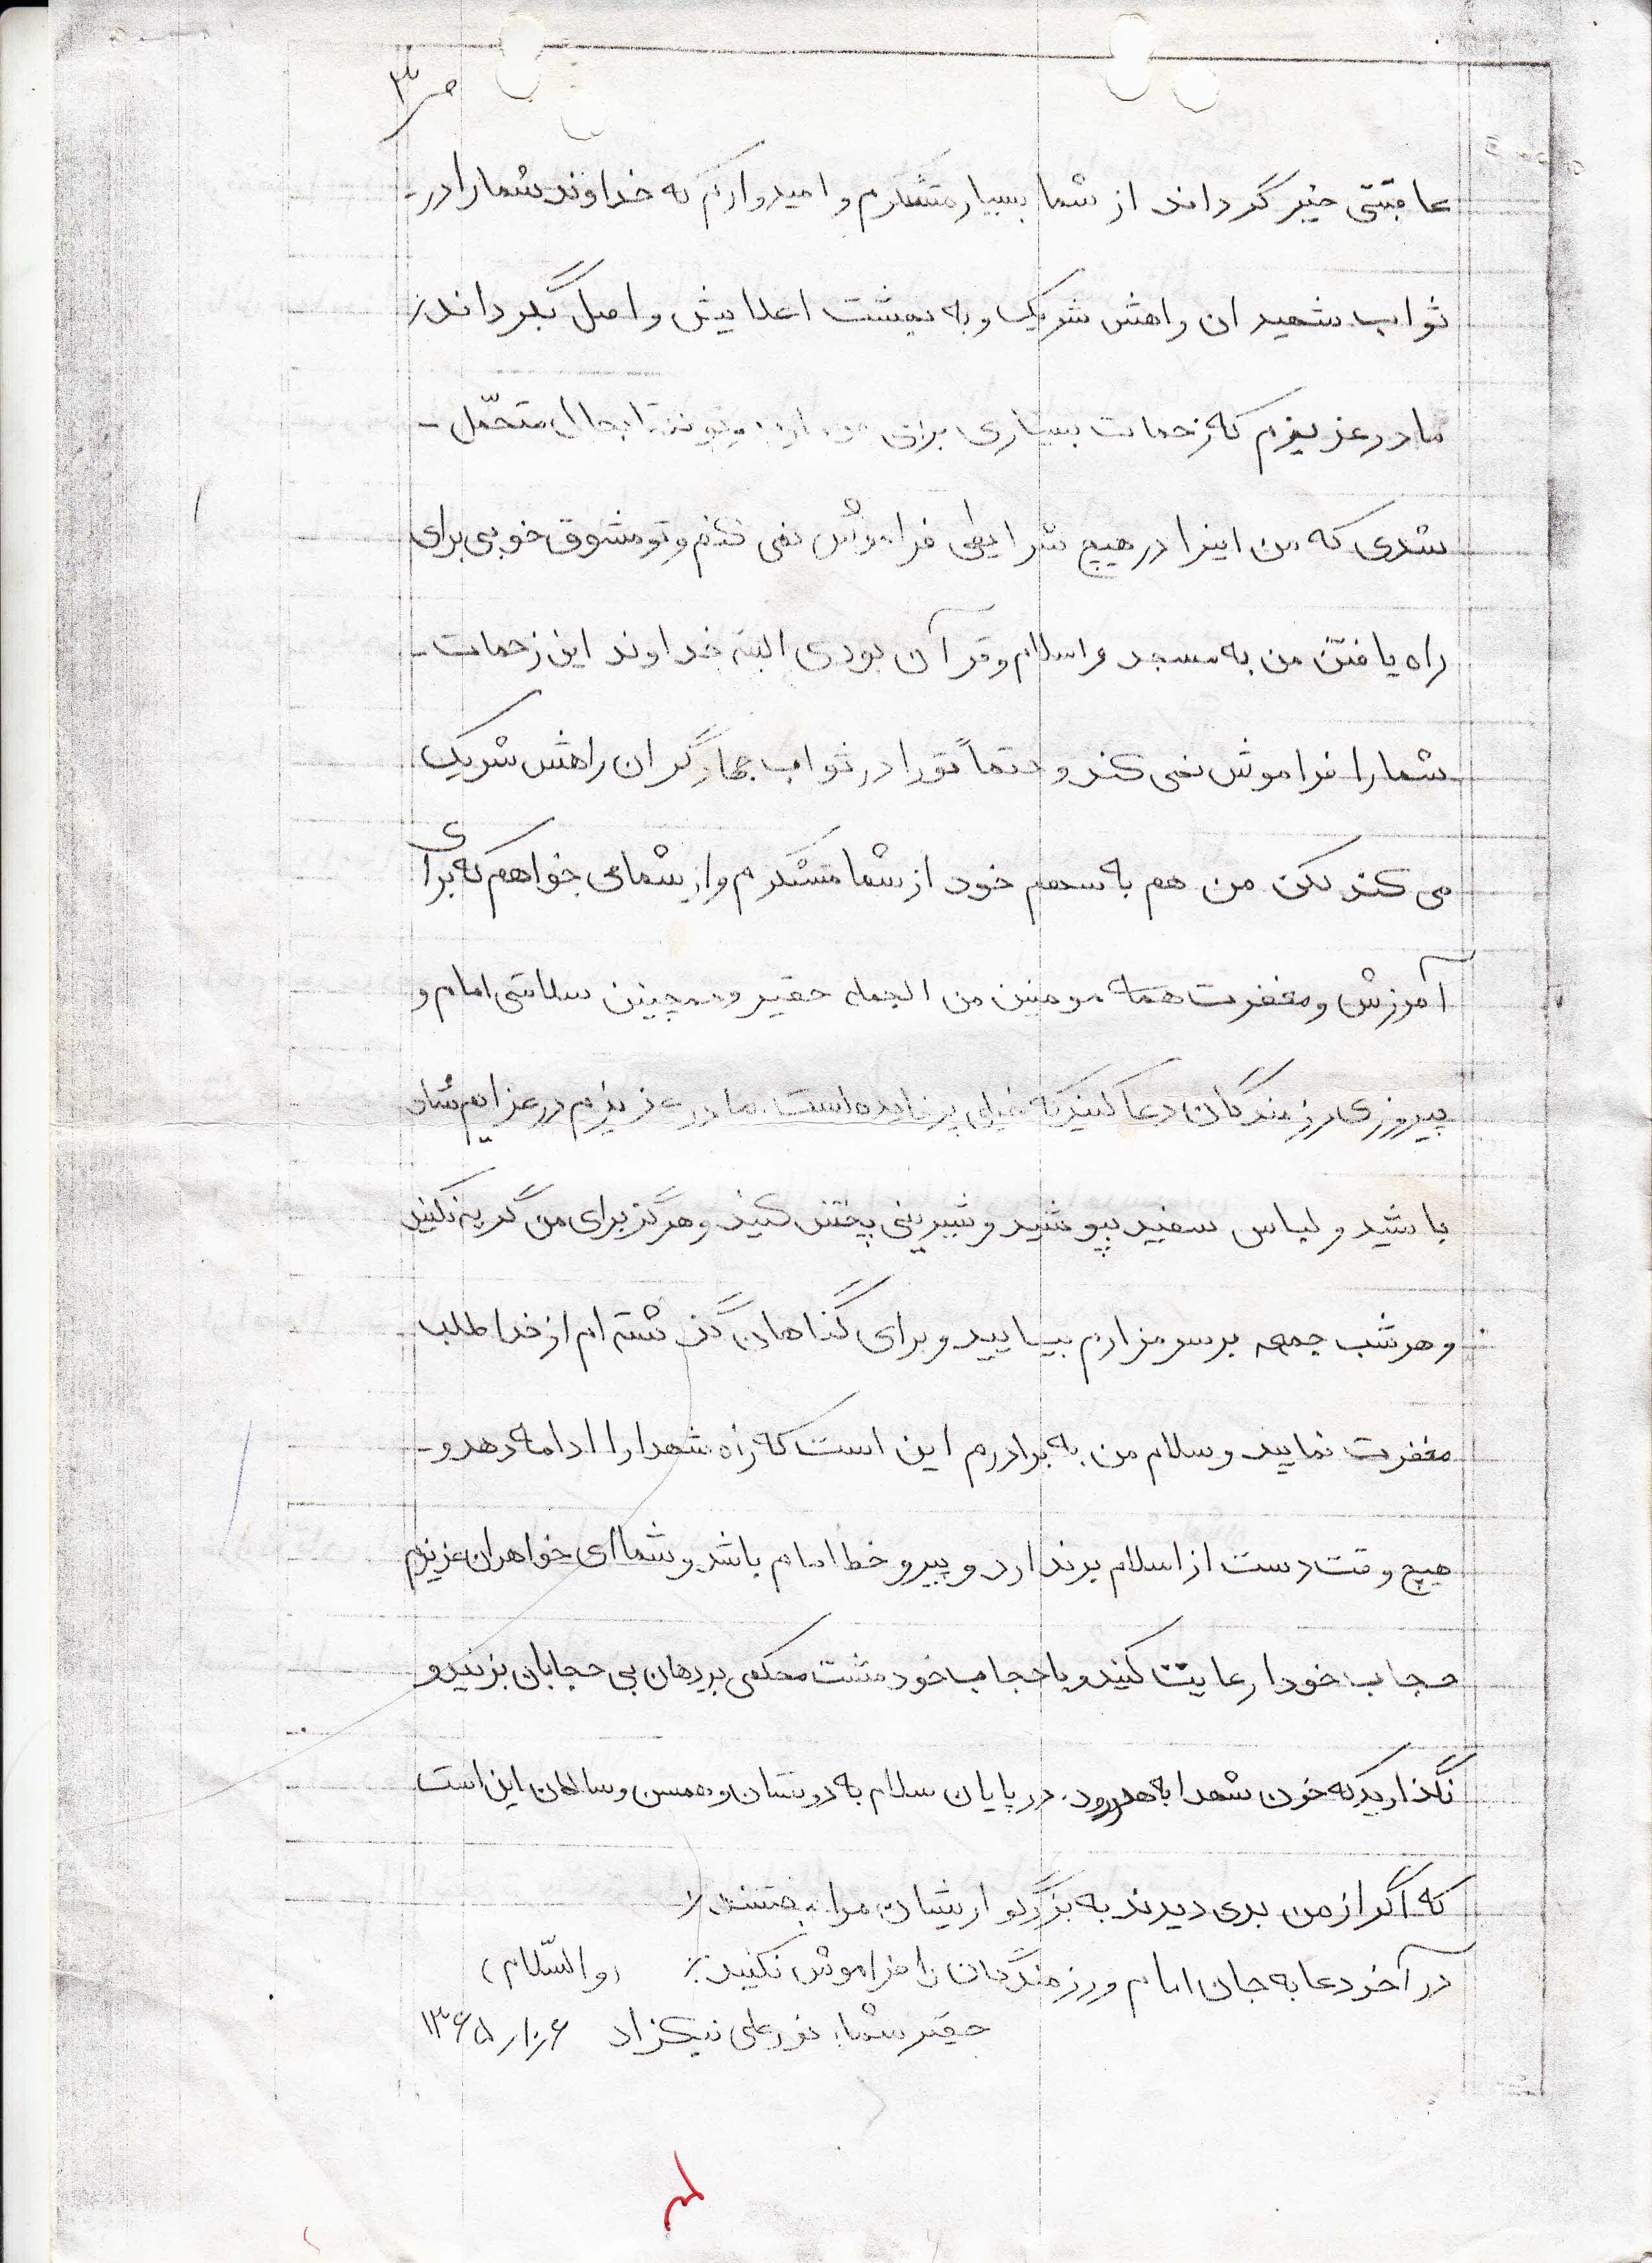 ص ۳
عاقبتی خیر گرداند از شما بسیار متشکرم و امیدوارم که خداوند شما را در -
ثواب شهیدان راهش شریک و به بهشت اعلایش واصل بگرداند/
مادر عزیزم که زحمات بسیاری برای من تا بحال متحمّل -
شدی که من اینرا در هیچ شرایطی فراموش نمی کنم و تو مشوق خوبی برای
راه یافتن من به مسجد و اسلام و قرآن بودی البته خداوند این زحمات -
شما را فراموش نمی کند و حتماً تو را در ثواب جهادگران راهش شریک
می کند لکن من هم به سهم خود از شما متشکرم و از شما می خواهم که برای
آمرزش و مغفرت همه مومنین من الجمله حقیر و همچنین سلامتی امام و
پیروزی رزمندگان دعا کنید که خیلی پر فایده است. مادر عزیزم در عزایم شاد
باشید و لباس سفید بپوشید و شیرینی پخش کنید و هرگز برای من گریه نکنید
و هر شب جمعه بر سر مزارم بیایید و برای گناهان گذشته ام از خدا طلب
مغفرت نمایید و سلام من به برادرم این است که راه شهدا را ادامه دهد و -
هیچ وقت دست از اسلام برندارد و پیرو خط امام باشد و شما ای خواهران عزیزم
حجاب خود را رعایت کنید و با حجاب خود مشت محکمی بر دهان بی حجابان بزنید و
نگذارید که خون شهدا به هدر رود. در پایان سلام به دوستان و همسن و سالان این است
که اگر از من بدی دیدند به بزرگواریشان مرا ببخشند./
در آخر دعا به جان امام و رزمندگان را فراموش نکنید./ (والسّلام)
حقیر شما، نورعلی نیکزاد ۱۳۶۵/۱۰/۶